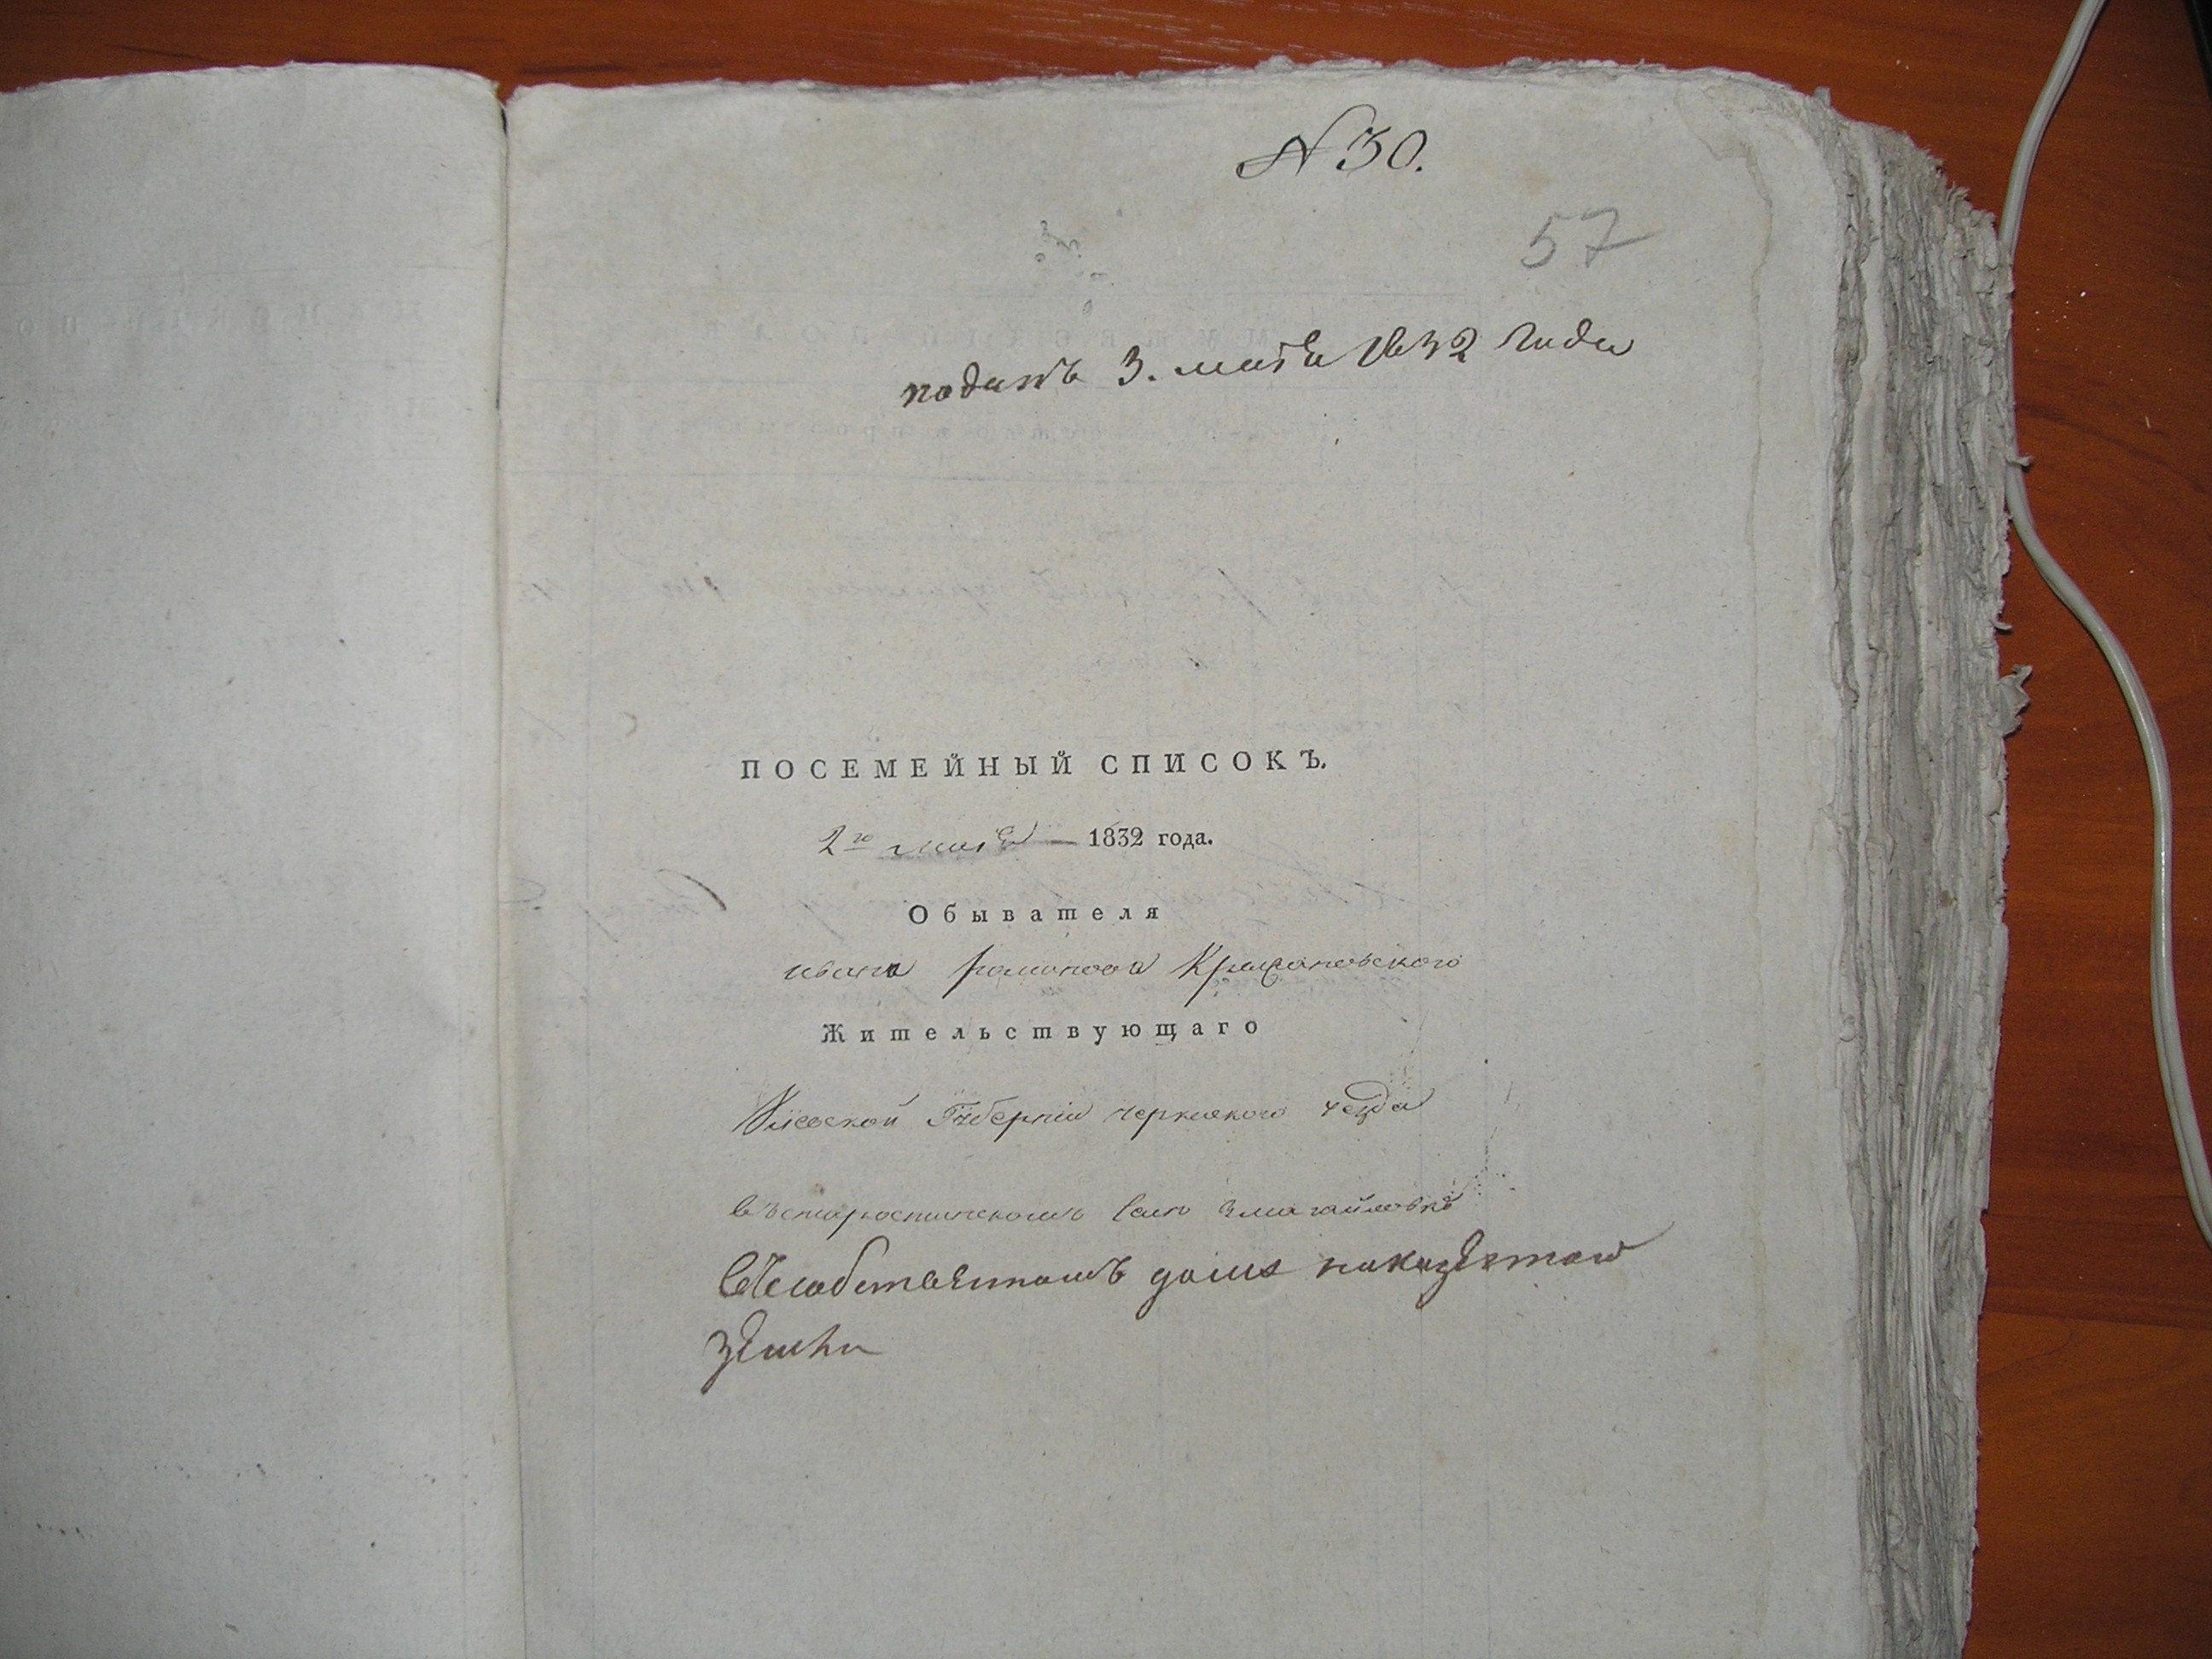 N 30.
57
поданъ 3. маія 1832 года
ПОСЕМЕЙНЫЙ СПИСОКЪ.
2го маія — 1832 года.
Обывателя
ивана романова
Жительствующаго
Кіевской Губерніи черкаского уезда
въ старостинскомъ селе змагайловке
въ собственномъ доме на казенной
земли